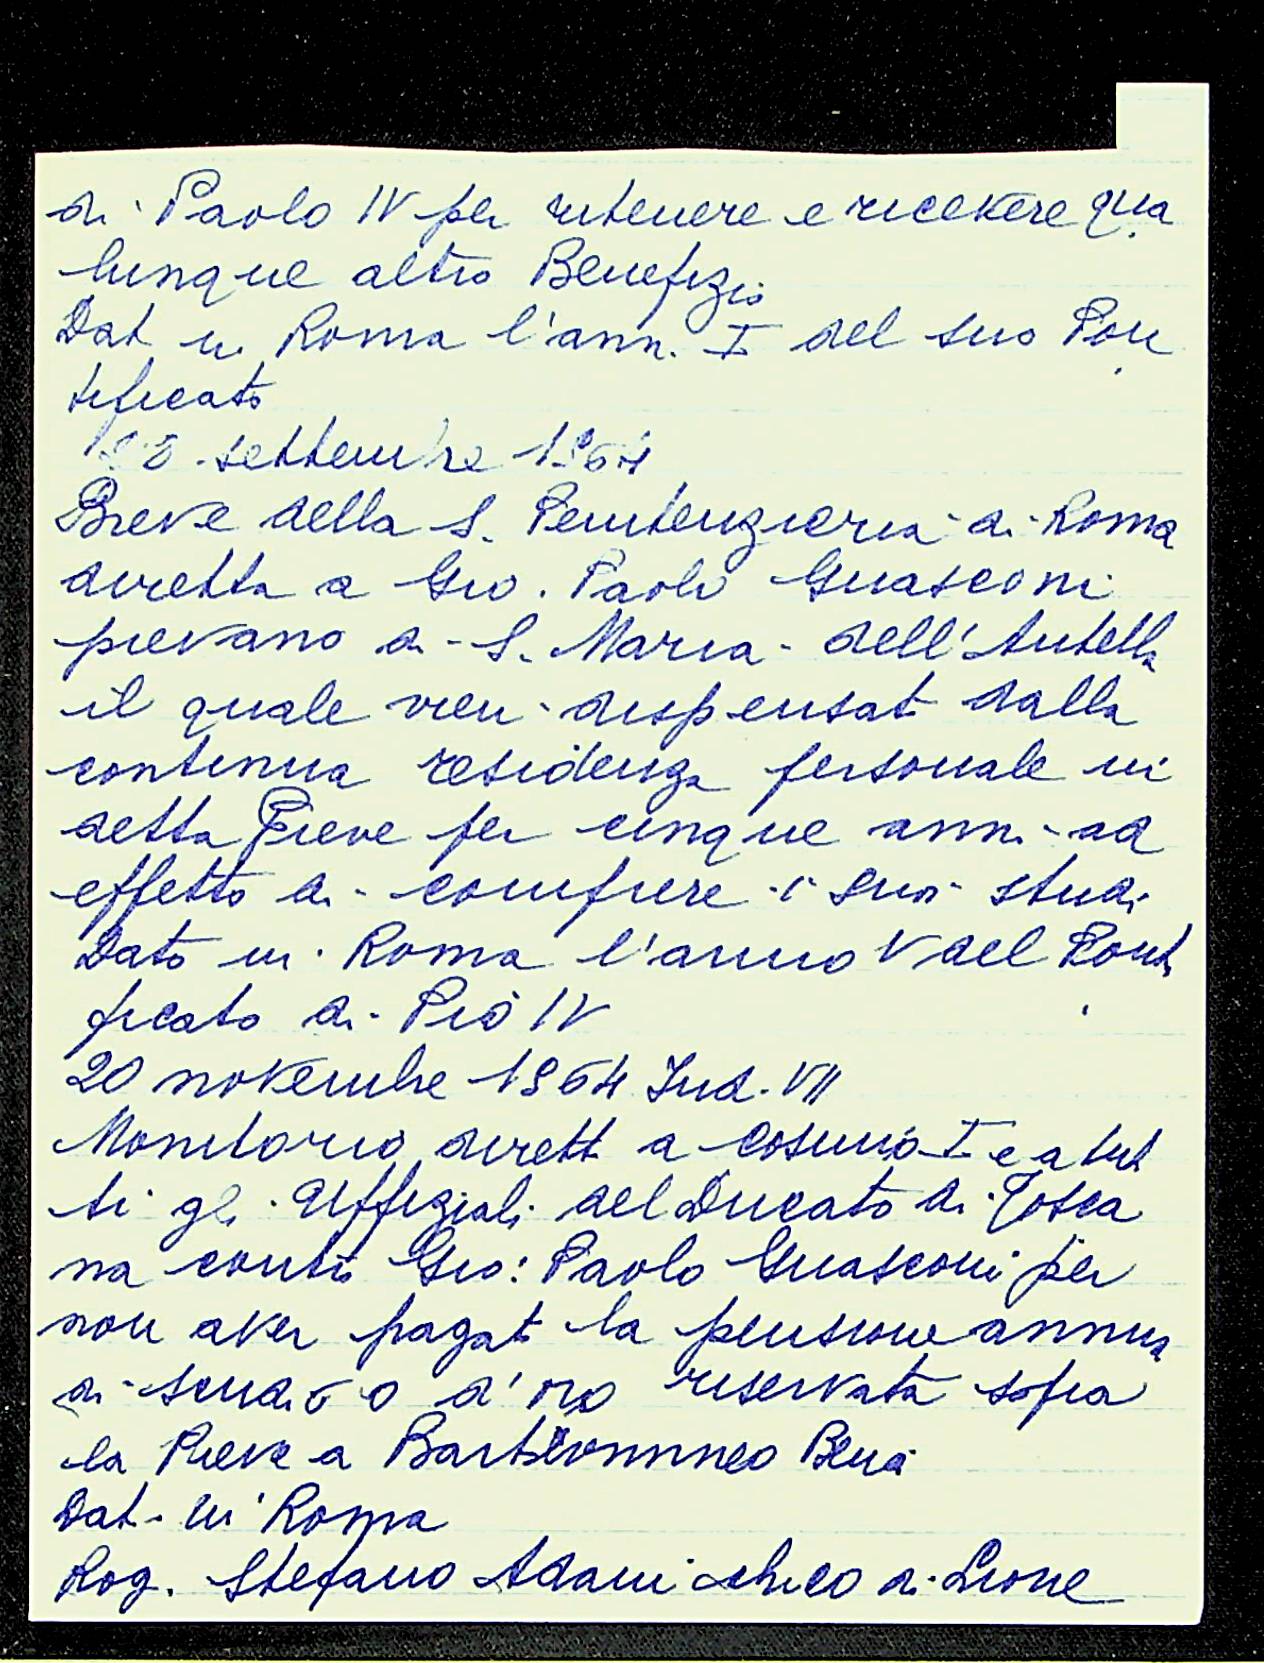 di Paolo IV per ritenere e ricevere qua
lunque altro Benefizio
Dat in Roma l'ann. I del suo Pon
tificato
settembre 1564
Breve della S. Penitenzieria di Roma
diretta a Gio. Paolo Guasconi
pievano di S. Maria dell'Antella
il quale vien dispensato dalla
continua residenza personale in
detta Pieve per cinque anni ad
effetto di compiere i suoi studi
Dato in Roma l'anno V del Ponti
ficato di Pio IV
20 novembre 1564 Ind. VII
Monitorio diretto a Cosimo I e a tut
ti gli Uffiziali del Ducato di Tosca
na contro Gio: Paolo Guasconi per
non aver pagato la pensione annua
di scudi 60 d'oro riservata sopra
la Pieve a Bartolommeo
Dat. in Roma
Rog. Stefano Adami di Lione